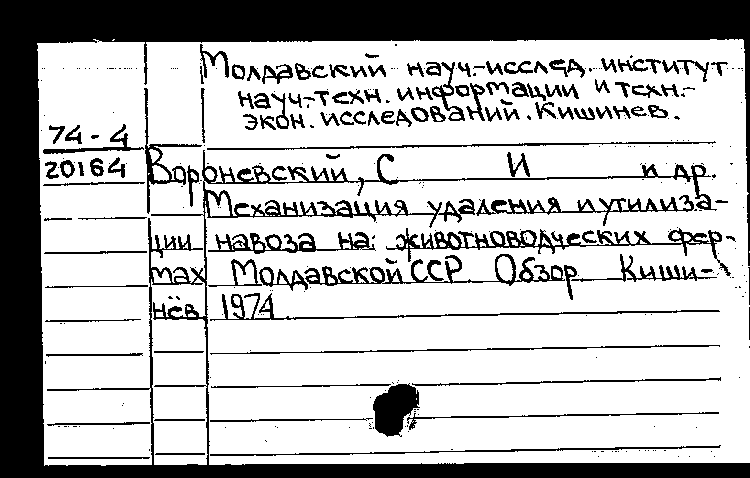 Молдавский науч.-исслед. институт
науч.-техн. информации и техн.-
экон. исследований. Кишинев.
74-4
20164
Вороневский, С И и др.
Механизация удаления и утилиза-
ции навоза на животноводческих фер-
мах Молдавской ССР. Обзор. Киши-
нёв, 1974.